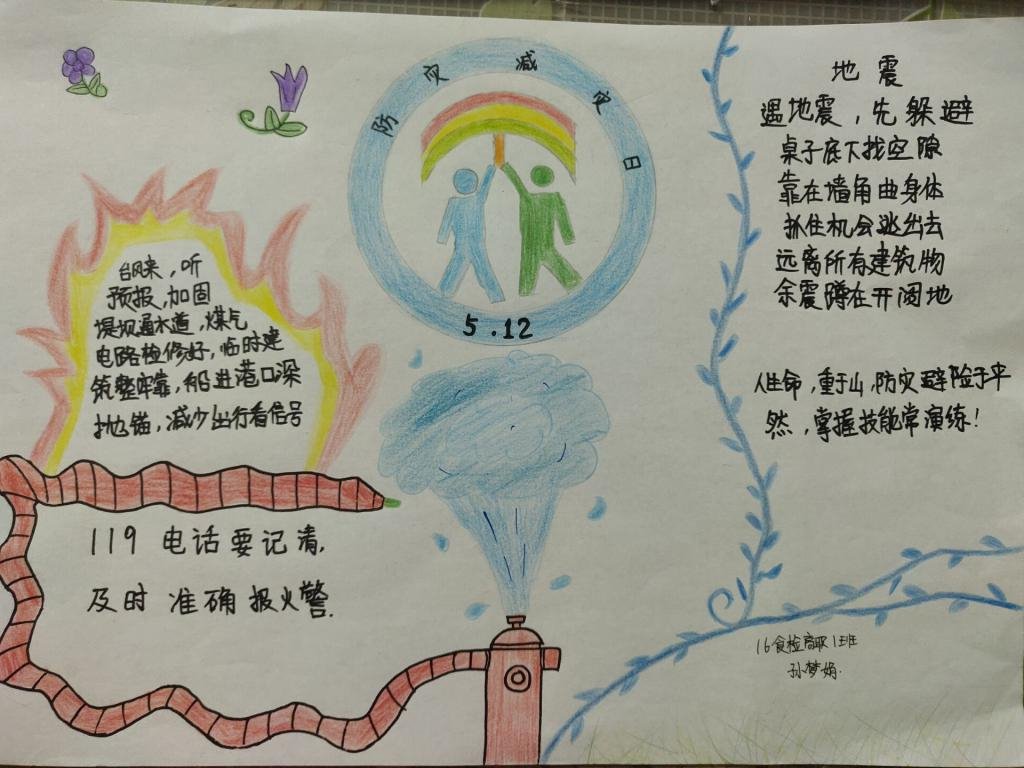 防灾减灾日
5.12
台风来，听
预报，加固
堤坝通水道，煤气
电路检修好，临时建
筑整牢靠，船进港口深
抛锚，减少出行看信号
119 电话要记清，
及时 准确 报火警.
地 震
遇地震，先躲避
桌子底下找空隙
靠在墙角曲身体
抓住机会逃出去
远离所有建筑物
余震蹲在开阔地
人生命，重于山，防灾避险于平
然，掌握技能常演练！
16食检高职1班
孙梦娟.